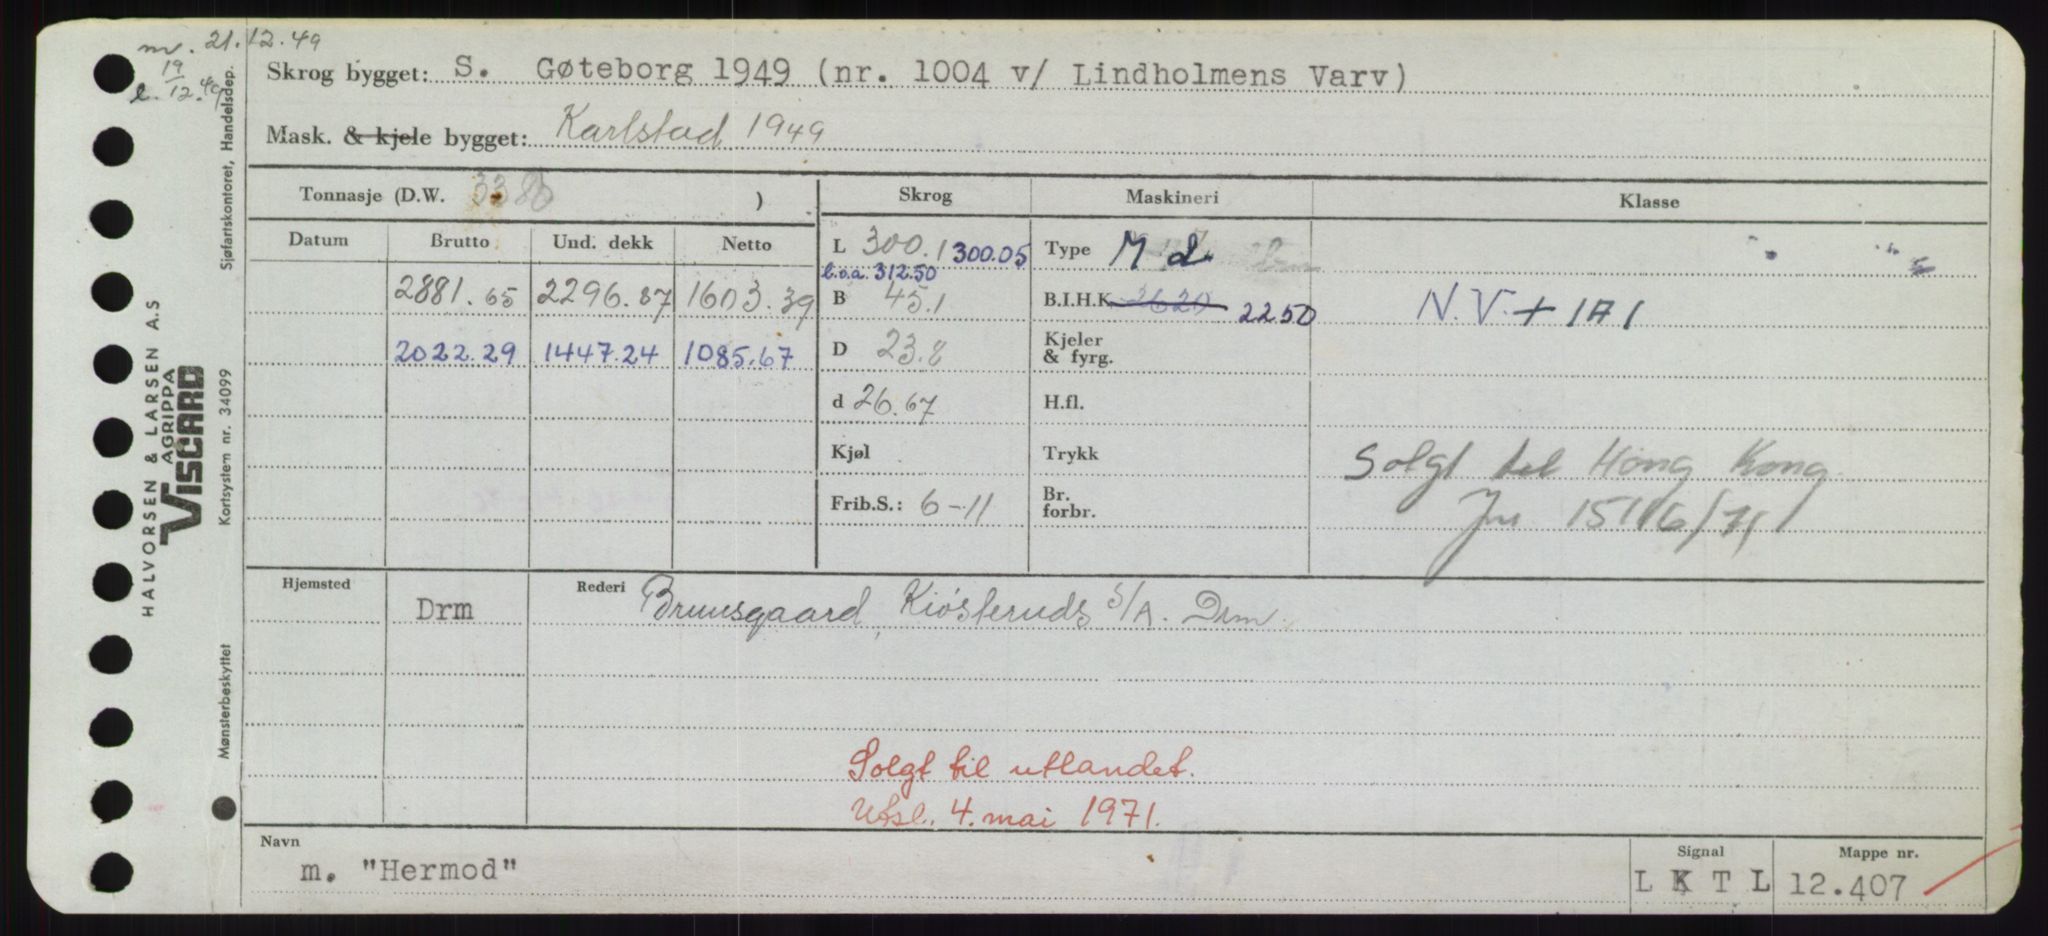 m. 21.12.49
19
l. 12.49
Skrog bygget: S. Gøteborg 1949 (nr. 1004 v/ Lindholmens Varv)
Mask. & kjele bygget: Karlstad 1949
Tonnasje (D.W. 3386 )
Skrog Maskineri Klasse
Datum Brutto Und. dekk Netto
L 300.1 300.05 Type M 2
l.o.a. 312.50
2881.65 2296.87 1603.39 B 45.1 B.I.H.K. 2620 2250 N.V. + 1A1
2022.29 1447.24 1085.67 D 23.8 Kjeler
& fyrg.
d 26.67 H.fl.
Kjøl Trykk Solgt til Hong Kong
Frib.S.: 6-11 Br.
forbr.
Jnr 15116/71
Hjemsted Rederi
Drm Bruusgaard, Kiøsteruds S/A. Drm
Solgt til utlandet.
Utsl. 4. mai 1971.
Navn Signal Mappe nr.
m. "Hermod" L K T L 12.407
HALVORSEN & LARSEN A.S
AGRIPPA
VISCARD
Mønsterbeskyttet Kortsystem nr. 34099 Sjøfartskontoret, Handelsdep.